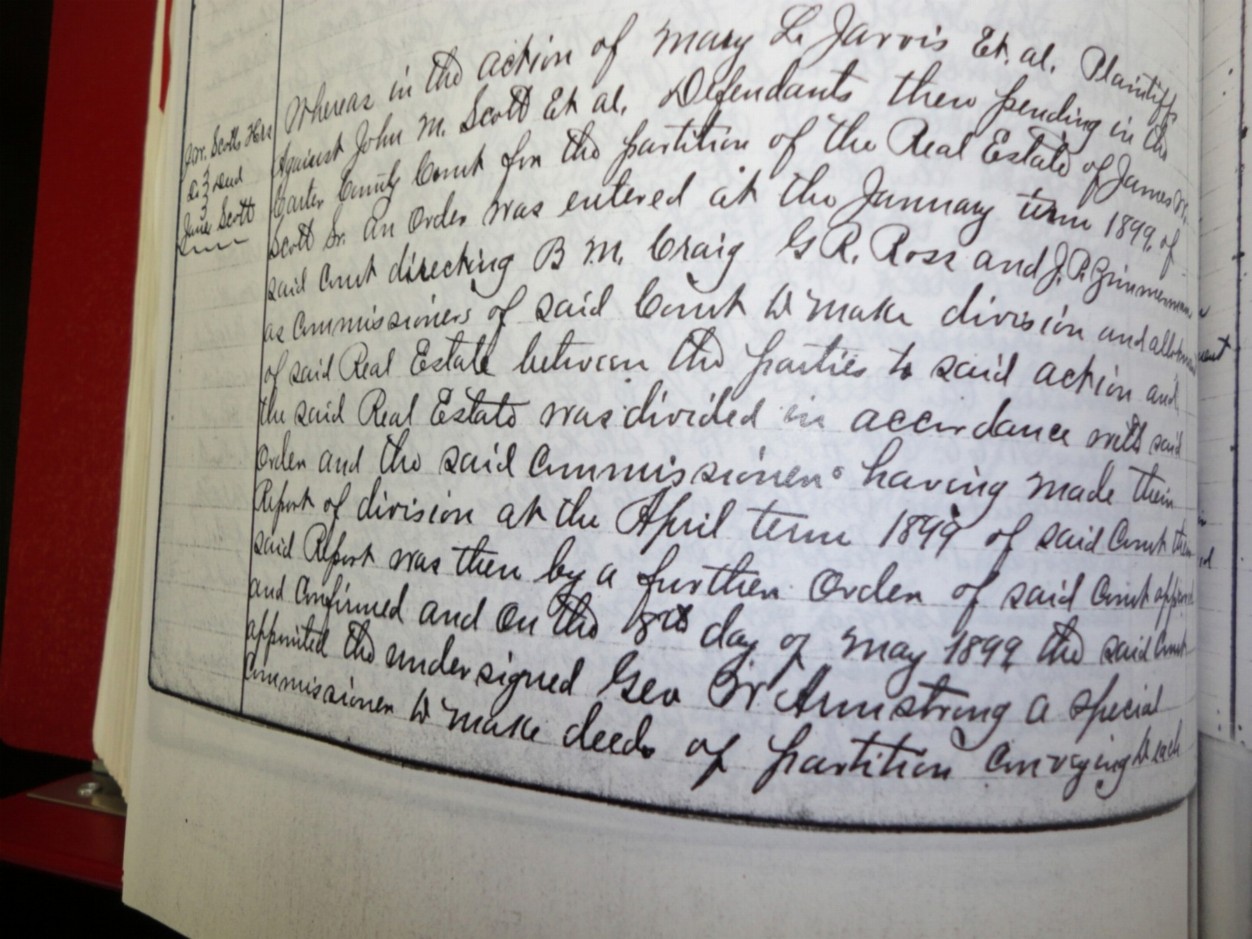 Jas. Scotts Heirs
Deed
James Scott
Whereas in the action of Mary L. Jarvis Et. al. Plaintiffs
Against John M. Scott Et al. Defendants then pending in the
Carter County Court for the partition of the Real Estate of James M.
Scott Sr. an order was entered at the January term 1899, of
said Court directing B M. Craig G R. Ross and J. P. Zimmerman
as Commissioners of said Court to make division and allotment
of said Real Estate between the parties to said action and
the said Real Estate was divided in accordance with said
Order and the said Commissioners having made their
Report of division at the April term 1899 of said Court
said Report was then by a further Order of said Court
and Confirmed and on the 8th day of May 1899 the said Court
appointed the undersigned Geo W. Armstrong a special
Commissioner to make deeds of partition Conveying to each